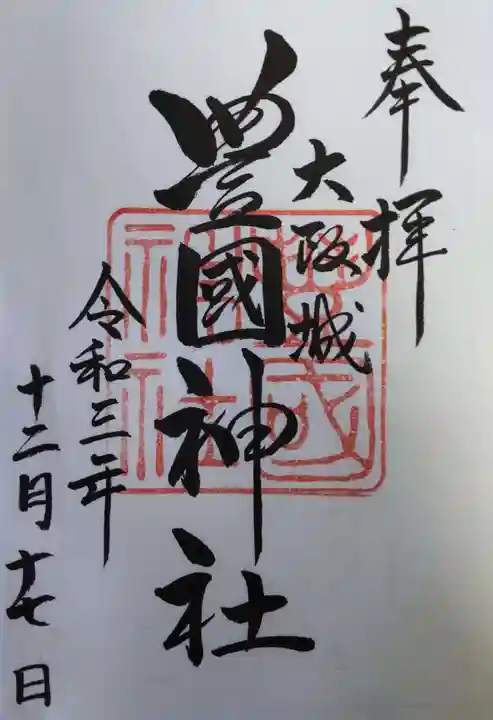 奉拝
大阪城
豊國神社
令和三年
十二月十七日
豊國
神社